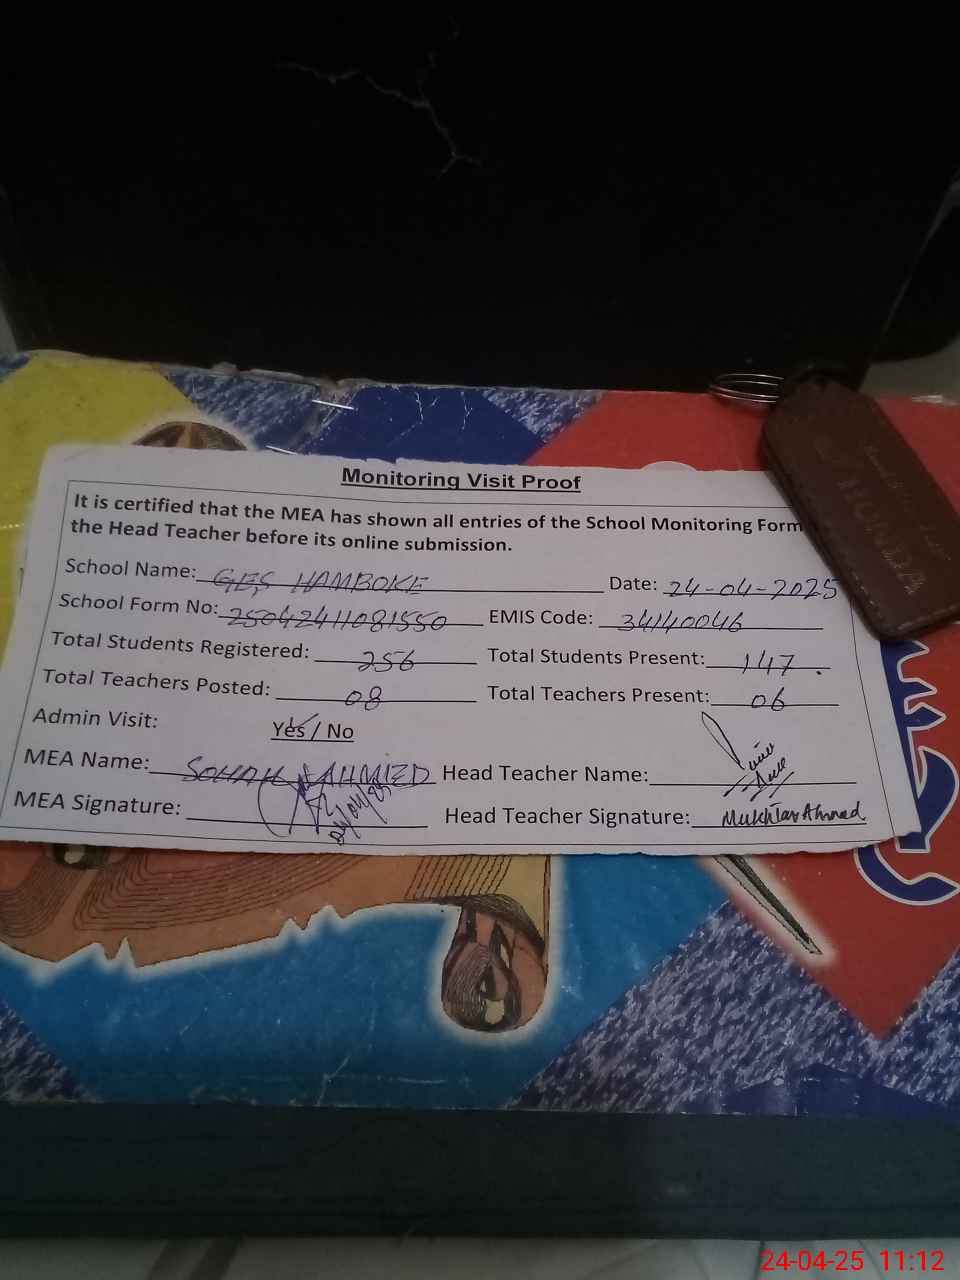 Monitoring Visit Proof
It is certified that the MEA has shown all entries of the School Monitoring Form
the Head Teacher before its online submission.
School Name: GES HAMBOKE Date: 24-04-2025
School Form No: 25042411081550 EMIS Code: 34140046
Total Students Registered: 256 Total Students Present: 147
Total Teachers Posted: 08 Total Teachers Present: 06
Admin Visit: Yes / No
MEA Name: SOHAIL AHMED Head Teacher Name:
MEA Signature: 24/04/25 Head Teacher Signature: Mukhtar Ahmad
24-04-25 11:12